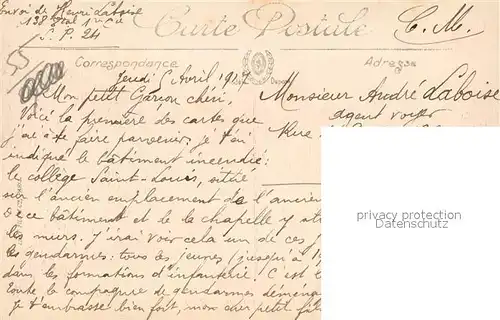 Envoi de Henri Laboise
138e
S. P. 24
Carte Postale
C. M.
55
Correspondance
Adresse
Jeudi 5 Avril 1917
Mon petit Garçon chéri,
Monsieur André Laboise
agent voyer
Voici la première des cartes que
Rue
j'ai à te faire parvenir. je t'ai
indiqué le bâtiment incendié:
le collège Saint-Louis, situé
sur l'ancien emplacement de l'ancien
privacy protection
Datenschutz
bâtiment et de la chapelle y
les murs. J'irai voir cela un de ces
les gendarmes. tous les jeunes (jusqu'à
dans les formations d'infanterie. C'est
toute la compagnie de gendarmes
Je t'embrasse bien fort, mon cher petit